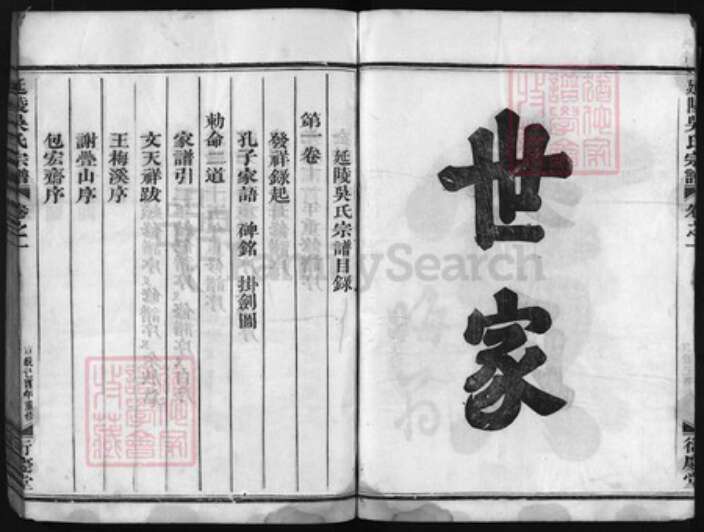 世家
延陵吳氏宗譜目錄
第一卷
發祥錄起
孔子家語 碑銘 掛劍圖
勅命二道
家譜引
文天祥跋
王梅溪序
謝疊山序
包宏齋序
延陵吳氏宗譜 卷之一
延陵吳氏宗譜 卷之一
FamilySearch